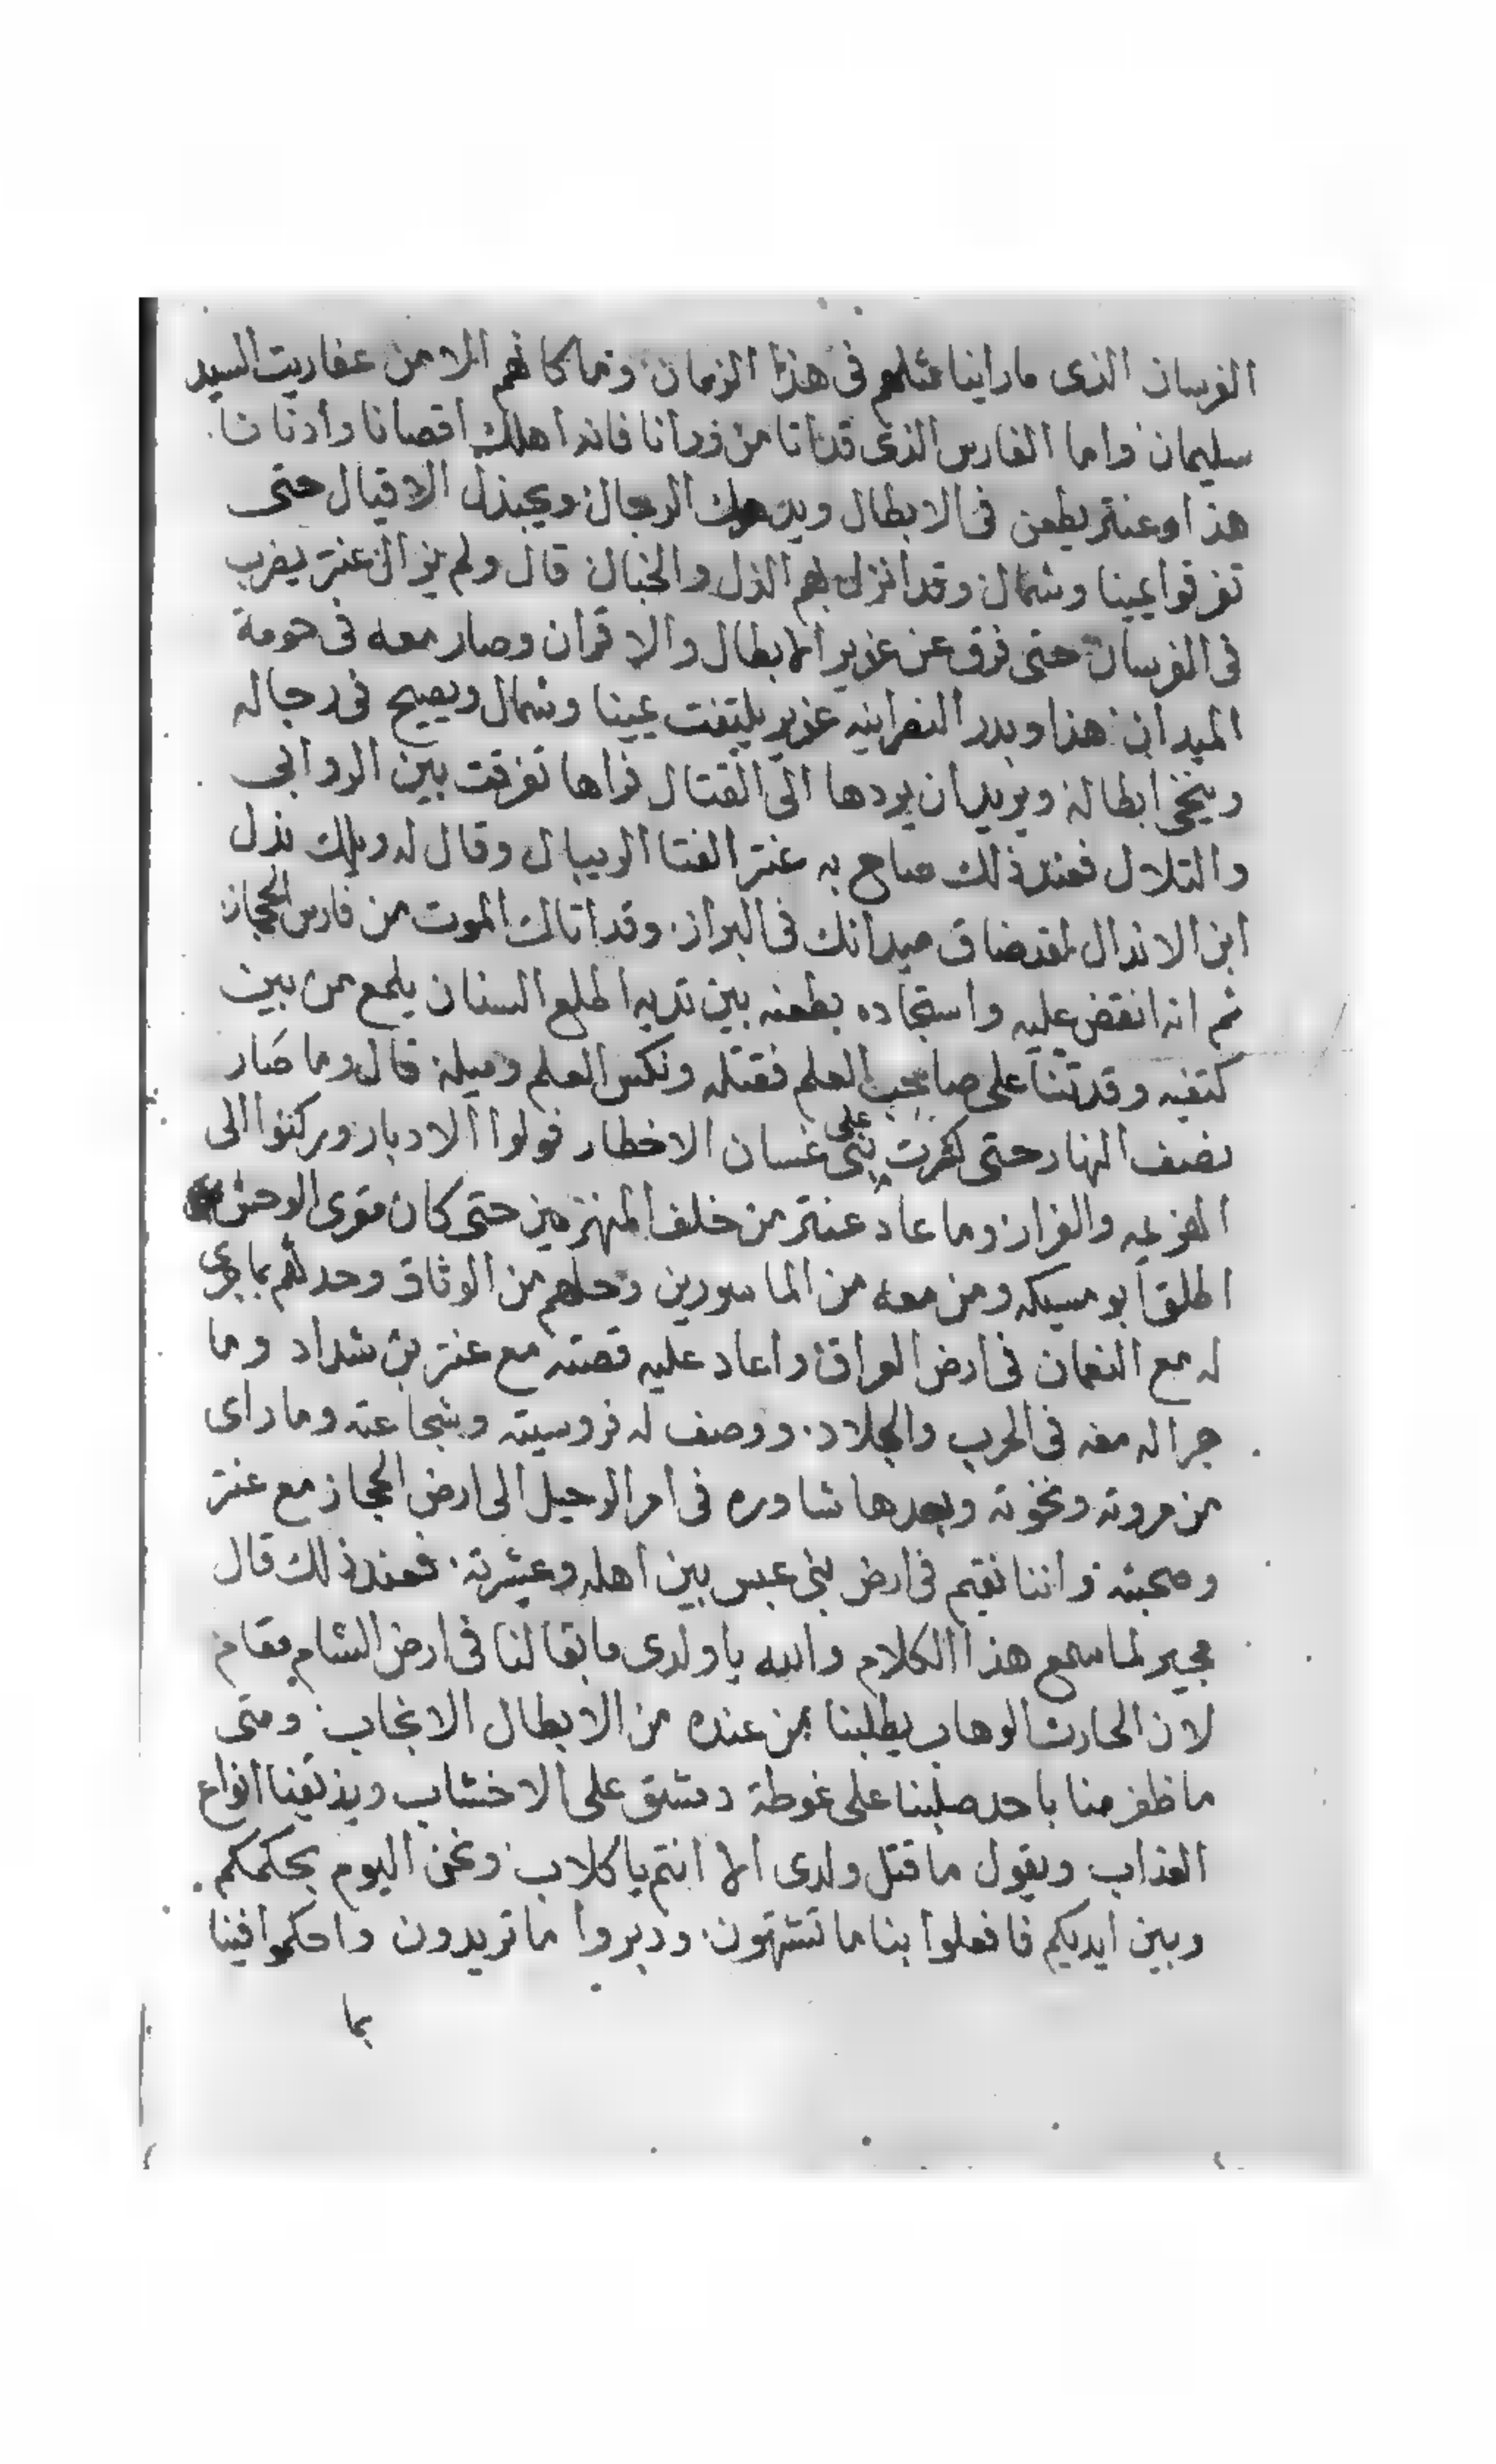 الفرسان الذى ماراينا مثلهم فى هذا الزمان وما كانهم الا من عفاريت السيد
سليمان واما الفارس الذى قد اتا من ورانا فانه اهلك اقصانا وادنانا
هذا وعنتر يطعن فى الابطال ويدعوك الرجال ويجندل الاقيال حتى
تفرقوا يمينا وشمال وقد انزل بهم الذل والخبال قال ولم يزال عنتر يضرب
فى الفرسان حتى فرق عن عزير الابطال والاقران وصار معه فى حومة
الميدان هذا وبدر النصرانيه عزير يلتفت يمينا وشمال ويصيح فى رجاله
وينخى ابطاله ويريد ان يردها الى القتال فراها تفرقت بين الروابى
والتلال فعند ذلك صاح به عنتر الفتا الريبال وقال له ويلك نذل
ابن الاندال لقد ضاق ميدانك فى البراز وقد اتاك الموت من فارس الحجاز
ثم انه انقض عليه واستجاده بطعنه بين تديه اطلع السنان يلمع من بين
كتفيه وقد تنا على صاحب العلم فقتله ونكس العلم وميله قال وما صار
نصف النهار حتى كثرت على بنى غسان الاخطار فولوا الادبار وركنوا الى
الهزيمه والفرار وما عاد عنتر من خلف المنهزمين حتى كان مقرى الوحش
اطلق ابو مسيكه ومن معه من الماسورين وحلهم من الوثاق وحدثهم بما جرى
له مع النعمان فى ارض العراق واعاد عليه قصته مع عنتر بن شداد وما
جرا له معه فى الحرب والجلاد ووصف له فروسيته وشجاعته وماراى
من مروته ونخوته وبعدها شاوره فى امر الرحيل الى ارض الحجاز مع عنتر
وصحبته واننا نقيم فى ارض بنى عبس بين اهله وعشرته فعند ذلك قال
مجير لما سمع هذا الكلام والله ياولدى ما بقا لنا فى ارض الشام مقام
لان الحارث الوهاب يطلبنا بمن عنده من الابطال الانجاب ومتى
ما ظفر منا باحد صلبنا على غوطة دمشق على الاخشاب ويذيقنا انواع
العذاب ويقول ما قتل ولدى الا انتم يا كلاب ونحن اليوم بحكمكم
وبين ايديكم فافعلوا بنا ما تشتهون ودبروا ما تريدون واحكموا فينا
بما